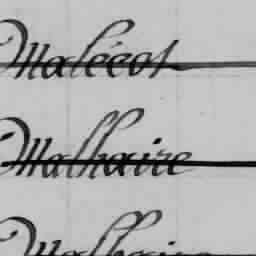 Maléeot
Malhaire